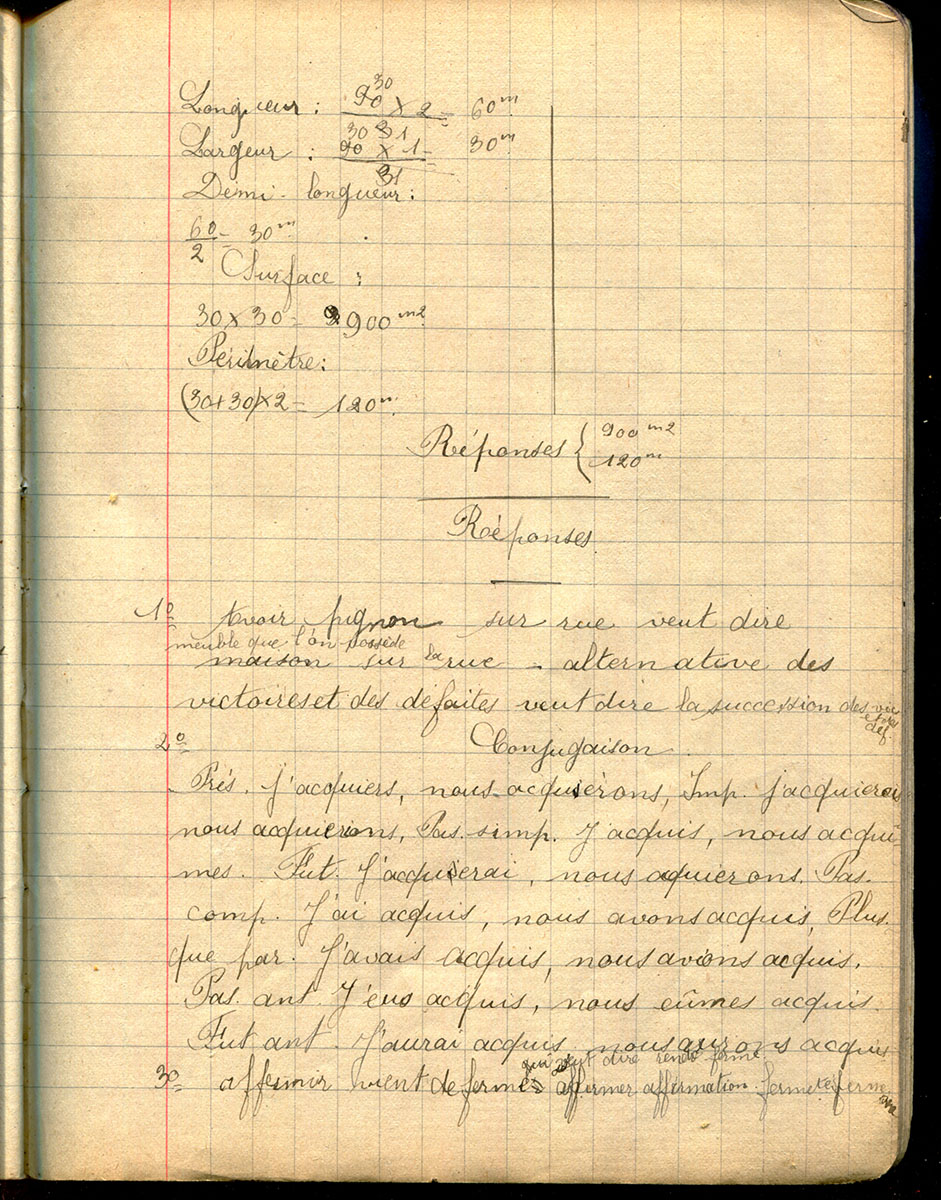 Longueur : 90 30 × 2 = 60m
30 3 1
Largeur : 90 × 1 = 30m
31
Demi-longueur :
60/2 = 30m
Surface :
30 × 30 = 900 m2
Périmètre :
(30+30)×2 = 120m
Réponses { 900 m2
120m
Réponses.
1º Avoir pignon sur rue veut dire
meuble que l'on possède
maison sur la rue - alternative des
victoires et des défaites veut dire la succession des vic
et des
déf
2º Conjugaison.
Prés. J'acquiers, nous acquiérons, Imp. j'acquierai
nous acquierions, Pas. simp. J'acquis, nous acquî-
mes. Fut. J'acquierai, nous aquierons. Pas.
comp. J'ai acquis, nous avons acquis, Plus.
que par. J'avais acquis, nous avions acquis.
Pas. ant. J'eus acquis, nous eûmes acquis.
Fut ant. J'aurai acquis nous aurons acquis
qui veut dire rendre ferme.
3º affermir vient de ferme affirmer affirmation fermeté ferme